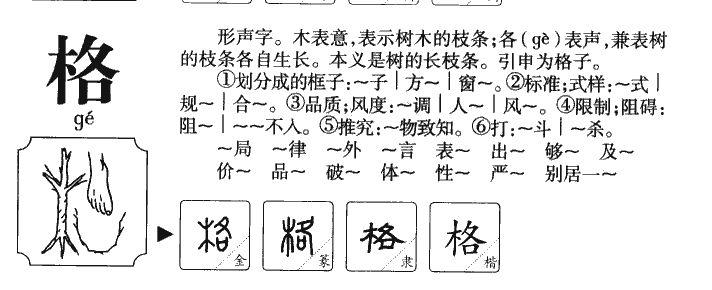 格
gé
形声字。木表意,表示树木的枝条;各(gè)表声,兼表树
的枝条各自生长。本义是树的长枝条。引申为格子。
①划分成的框子:～子｜方～｜窗～。②标准;式样:～式｜
规～｜合～。③品质;风度:～调｜人～｜风～。④限制;阻碍:
阻～｜～～不入。⑤推究:～物致知。⑥打:～斗｜～杀。
～局 ～律 ～外 ～言 表～ 出～ 够～ 及～
价～ 品～ 破～ 体～ 性～ 严～ 别居一～
格 金
格 篆
格 隶
格 楷